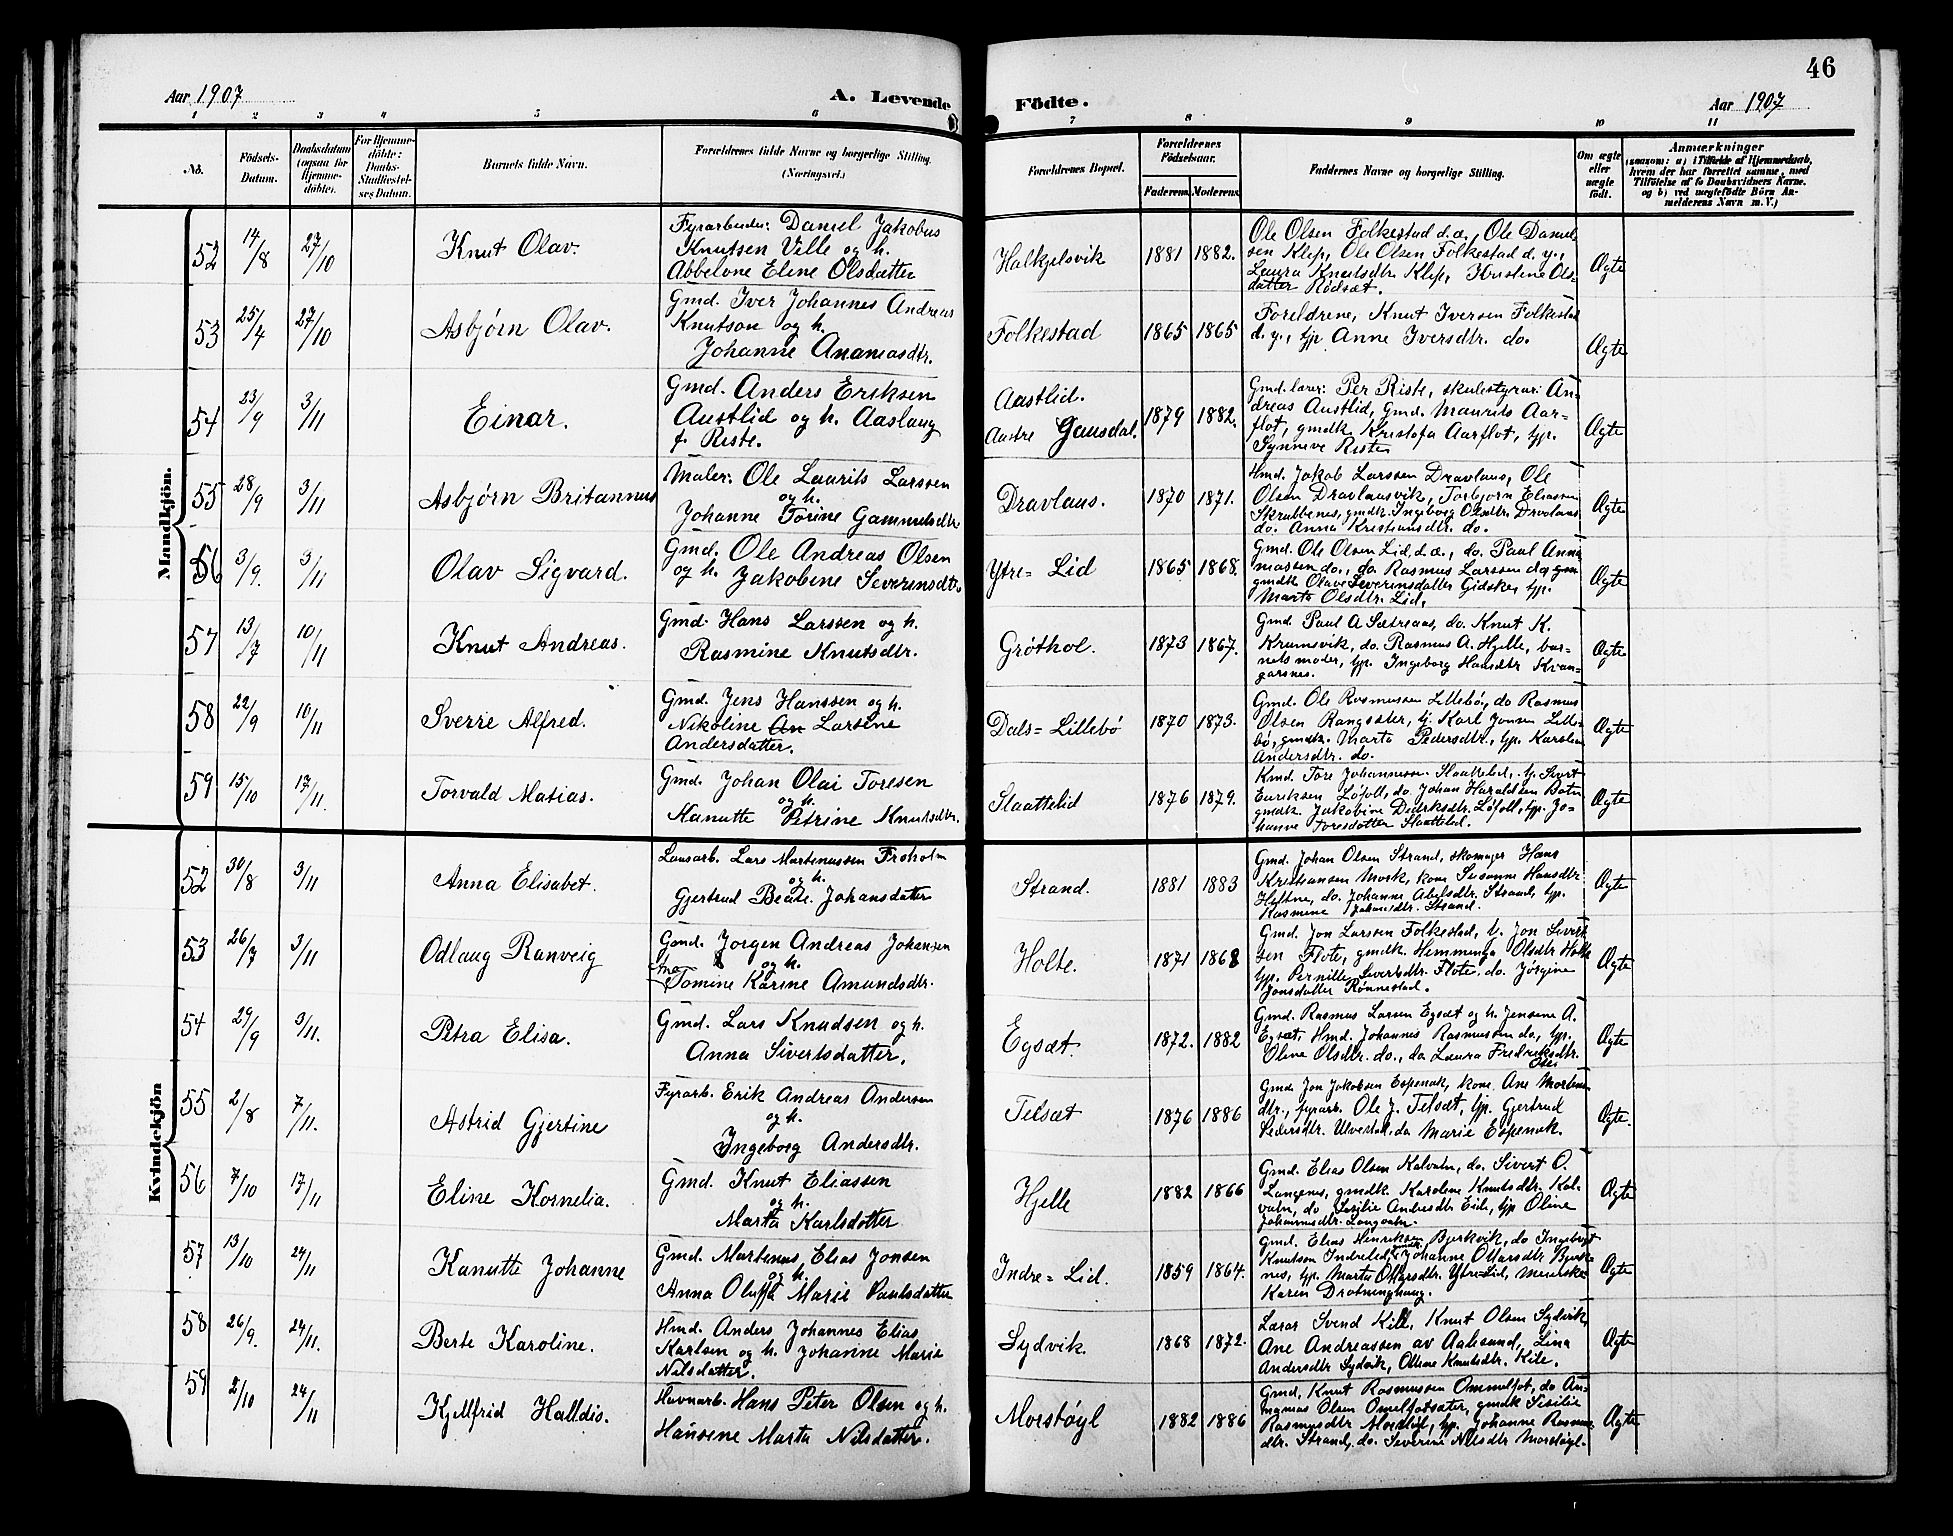 46
Aar 1907 A. Levende Födte. Aar 1907
1 2 3 4 5 6 7 8 9 10 11
No.
Födsels-
Datum.
Daabsdatum
(ogsaa for
Hjemme-
döbte).
For Hjemme-
döbte:
Daabs-
Stadfæstel-
ses Datum.
Barnets fulde Navn.
Forældrenes fulde Navne og borgerlige Stilling.
(Næringsvei.)
Forældrenes Bopæl.
Forældrenes
Födselsaar.
Faderens. Moderens.
Faddernes Navne og borgerlige Stilling.
Om ægte
eller
uægte
födt.
Anmærkninger
(saasom: a) i Tilfælde af Hjemmedaab,
hvem der har forrettet samme, med
Tilföielse af to Daabsvidners Navne.
og b) ved uægtefödte Börn An-
melderens Navn m. V.)
Mandkjön.
52 14/8 27/10 Knut Olav.
Fyrarbeider: Daniel Jakobus
Knutsen Velle og h.
Abbelone Eline Olsdatter
Halkjelsvik 1881 1882.
Ole Olsen Folkestad d.æ., Ole Daniel-
sen Klep, Ole Olsen Folkestad d. y.,
Laura Knutsdtr. Klep, Kristine Ols-
datter Rødsæt.
Ægte
53 25/4 27/10 Asbjørn Olav.
Gmd. Iver Johannes Andreas
Knutson og h.
Johanne Ananiasdtr.
Folkestad 1865 1865
Foreldrene, Knut Iversen Folkestad
d. y., tjp Anne Iversdtr. do.
Ægte
54 23/9 3/11 Einar.
Gmd. Anders Eriksen
Austlid og h. Aaslaug
f. Riste.
Aastlid.
Austre Gausdal. 1879 1882.
Gmd. lærer: Per Riste, skulestyrar: An-
dreas Austlid, gmd. Maurits Aar-
flot, gmdk. Kristofa Aarflot, tjp.
Synneve Riste
Ægte
55 28/9 3/11 Asbjørn Britannus
Maler: Ole Laurits Larssen
og h.
Johanne Torine Gammelsdtr.
Dravlaus. 1870 1871.
Hmd. Jakob Larssen Dravlaus, Ole
Olsen Dravlausvik, Torbjørn Eliassen
Skrubbenes, gmdk. Ingeborg Olsdtr. Dravlaus
do. Anna Kristiansdtr. do.
Ægte
56 3/9. 3/11 Olav Sigvard.
Gmd. Ole Andreas Olsen
og h. Jakobine Severensdtr.
Ytre=Lid 1865 1868.
Gmd. Ole Olsen Lid, d.æ., do. Paul Anni
massen do., do. Rasmus Larssen do,
gmdk Olave Severinsdatter Gidske, tjp.
Marta Olsdtr. Lid.
Ægte
57 13/7 10/11 Knut Andreas.
Gmd. Hans Larssen og h.
Rasmine Knutsdtr.
Gróthol. 1873 1867.
Gmd. Paul A Sætreaas, do. Knut K.
Krumsvik, do. Rasmus A. Hjelle, bar-
nets moder, tjp. Ingeborg Hansdtr Kvan-
garsnes.
Ægte
58 22/9 10/11 Sverre Alfred.
Gmd. Jens Hanssen og h.
Nikoline An Larsine
Andersdatter.
Dals=Lillebø 1870 1873.
Gmd. Ole Rasmussen Lillebø, do Rasmus
Olsen Rangsæter, tj. Karl Jonsen Lille-
bø, gmdk. Marta Pedersdtr., tjp. Karsten
Andersdtr. do.
Ægte
59 15/10 17/11. Torvald Matias.
Gmd. Johan Olai Toresen
og h.
Kanutte Petrine Knutsdtr.
Slaattelid 1876 1879.
Kmd. Tore Johannessen Slaattelid, tj. Sivert
Enriksen Løfoll, do. Johan Haraldsen Botn
gmdk. Jakobine Didriksdtr. Løfoll, tjp. Jo-
hanne Toresdatter Slaattelid.
Ægte
Kvindekjön
52 30/8 3/11 Anna Elisabet.
Lausarb. Lars Martinussen Froholm
og h.
Gjertrud Beate Johansdatter
Strand. 1881 1883
Gmd. Johan Olsen Strand, skomager Hans
Kristiansen Mork, kone Susanne Hansdtr
Heltne, do. Johanne Abelsdtr. Strand, tjp.
Rasmine Johansdtr. Strand.
Ægte
53 26/7 3/11 Odlaug Ranveig
Gmd. Jørgen Andreas Johansen
og h.
Ane Tomine Karine Amundsdtr.
Holte. 1871 1868
Gmd. Jon Larssen Folkestad, tj. Jon Sivert
sen Flote, gmdk. Hemminga Olsdtr Holte
tjp. Pernille Sivertsdtr. Flote, do. Jørgine
Jonsdatter Rønnestad.
Ægte
54 29/9 3/11. Petra Elisa.
Gmd. Lars Knudsen og h.
Anna Sivertsdatter.
Egsæt. 1872. 1882
Gmd. Rasmus Larsen Egsæt og h. Jensine A.
Egsæt, Hmd. Johannes Rasmussen do, tjp.
Oline Olsdtr. do., do Laura Fredriksdtr.
Ægte
55 2/8 7/11. Astrid Gjertine
Fyrarb. Erik Andreas Andersen
og h.
Ingeborg Andersdtr.
Telsæt 1876 1886
Gmd Jon Jakobsen Espenak, kone Ane Morten
dtr., fyrarb. Ole J. Telsæt, tjp. Gjertrud
Pedersdtr. Ulvestad, do Marie Espenak.
Ægte.
56 7/10 17/11 Eline Kornelia.
Gmd. Knut Eliassen
og h.
Marta Karlsdotter
Hjelle 1882 1866
Gmd. Elias Olsen Kalvatn, do. Sivert O.
Langenes, gmdk. Karoline Knutsdtr. Kal-
vatn, do Sesilie Andersdtr Eide, tjp Oline
Johannesdtr. Langvatn.
Ægte
57 13/10 24/11 Kanutte Johanne
Gmd. Martinus Elias Jonsen
og h.
Anna Oluffa Marie Paulsdatter
Indre=Lid. 1859 1864.
Gmd. Elias Henriksen Bjerkvik, do Ingebrigt
Knutson Indrelid, gmdk Johanne Ottarsdtr Bjerk-
nes, tjp. Marta Ottarsdtr. Ytre-Lid, meierske
Karen Drotninghaug.
Ægte
58 26/9. 24/11. Berte Karoline.
Hmd. Anders Johannes Elias
Karlsen og h. Johanne Marie
Nilsdatter.
Sydvik. 1868 1872.
Lærar Svend Kile, Knut Olsen Sydvik,
Ane Andreassen av Aalesund, Lina
Andersdtr Sydvik, Oline Knutsdtr. Kile.
Ægte
59 2/10 24/11 Kjellfrid Halldis.
Havnarb. Hans Peter Olsen og h.
Hansene Marta Nilsdatter.
Morstøyl 1882 1886
Gmd. Knut Rasmussen Ommelfot, do An-
nanias Olsen Omelfotsæter, gmdk Sisilie
Rasmusdtr Mordlid, tjp. Johanne Rasmus-
dtr. Strand, do. Severine Nilsdtr Morstøyl.
Ægte